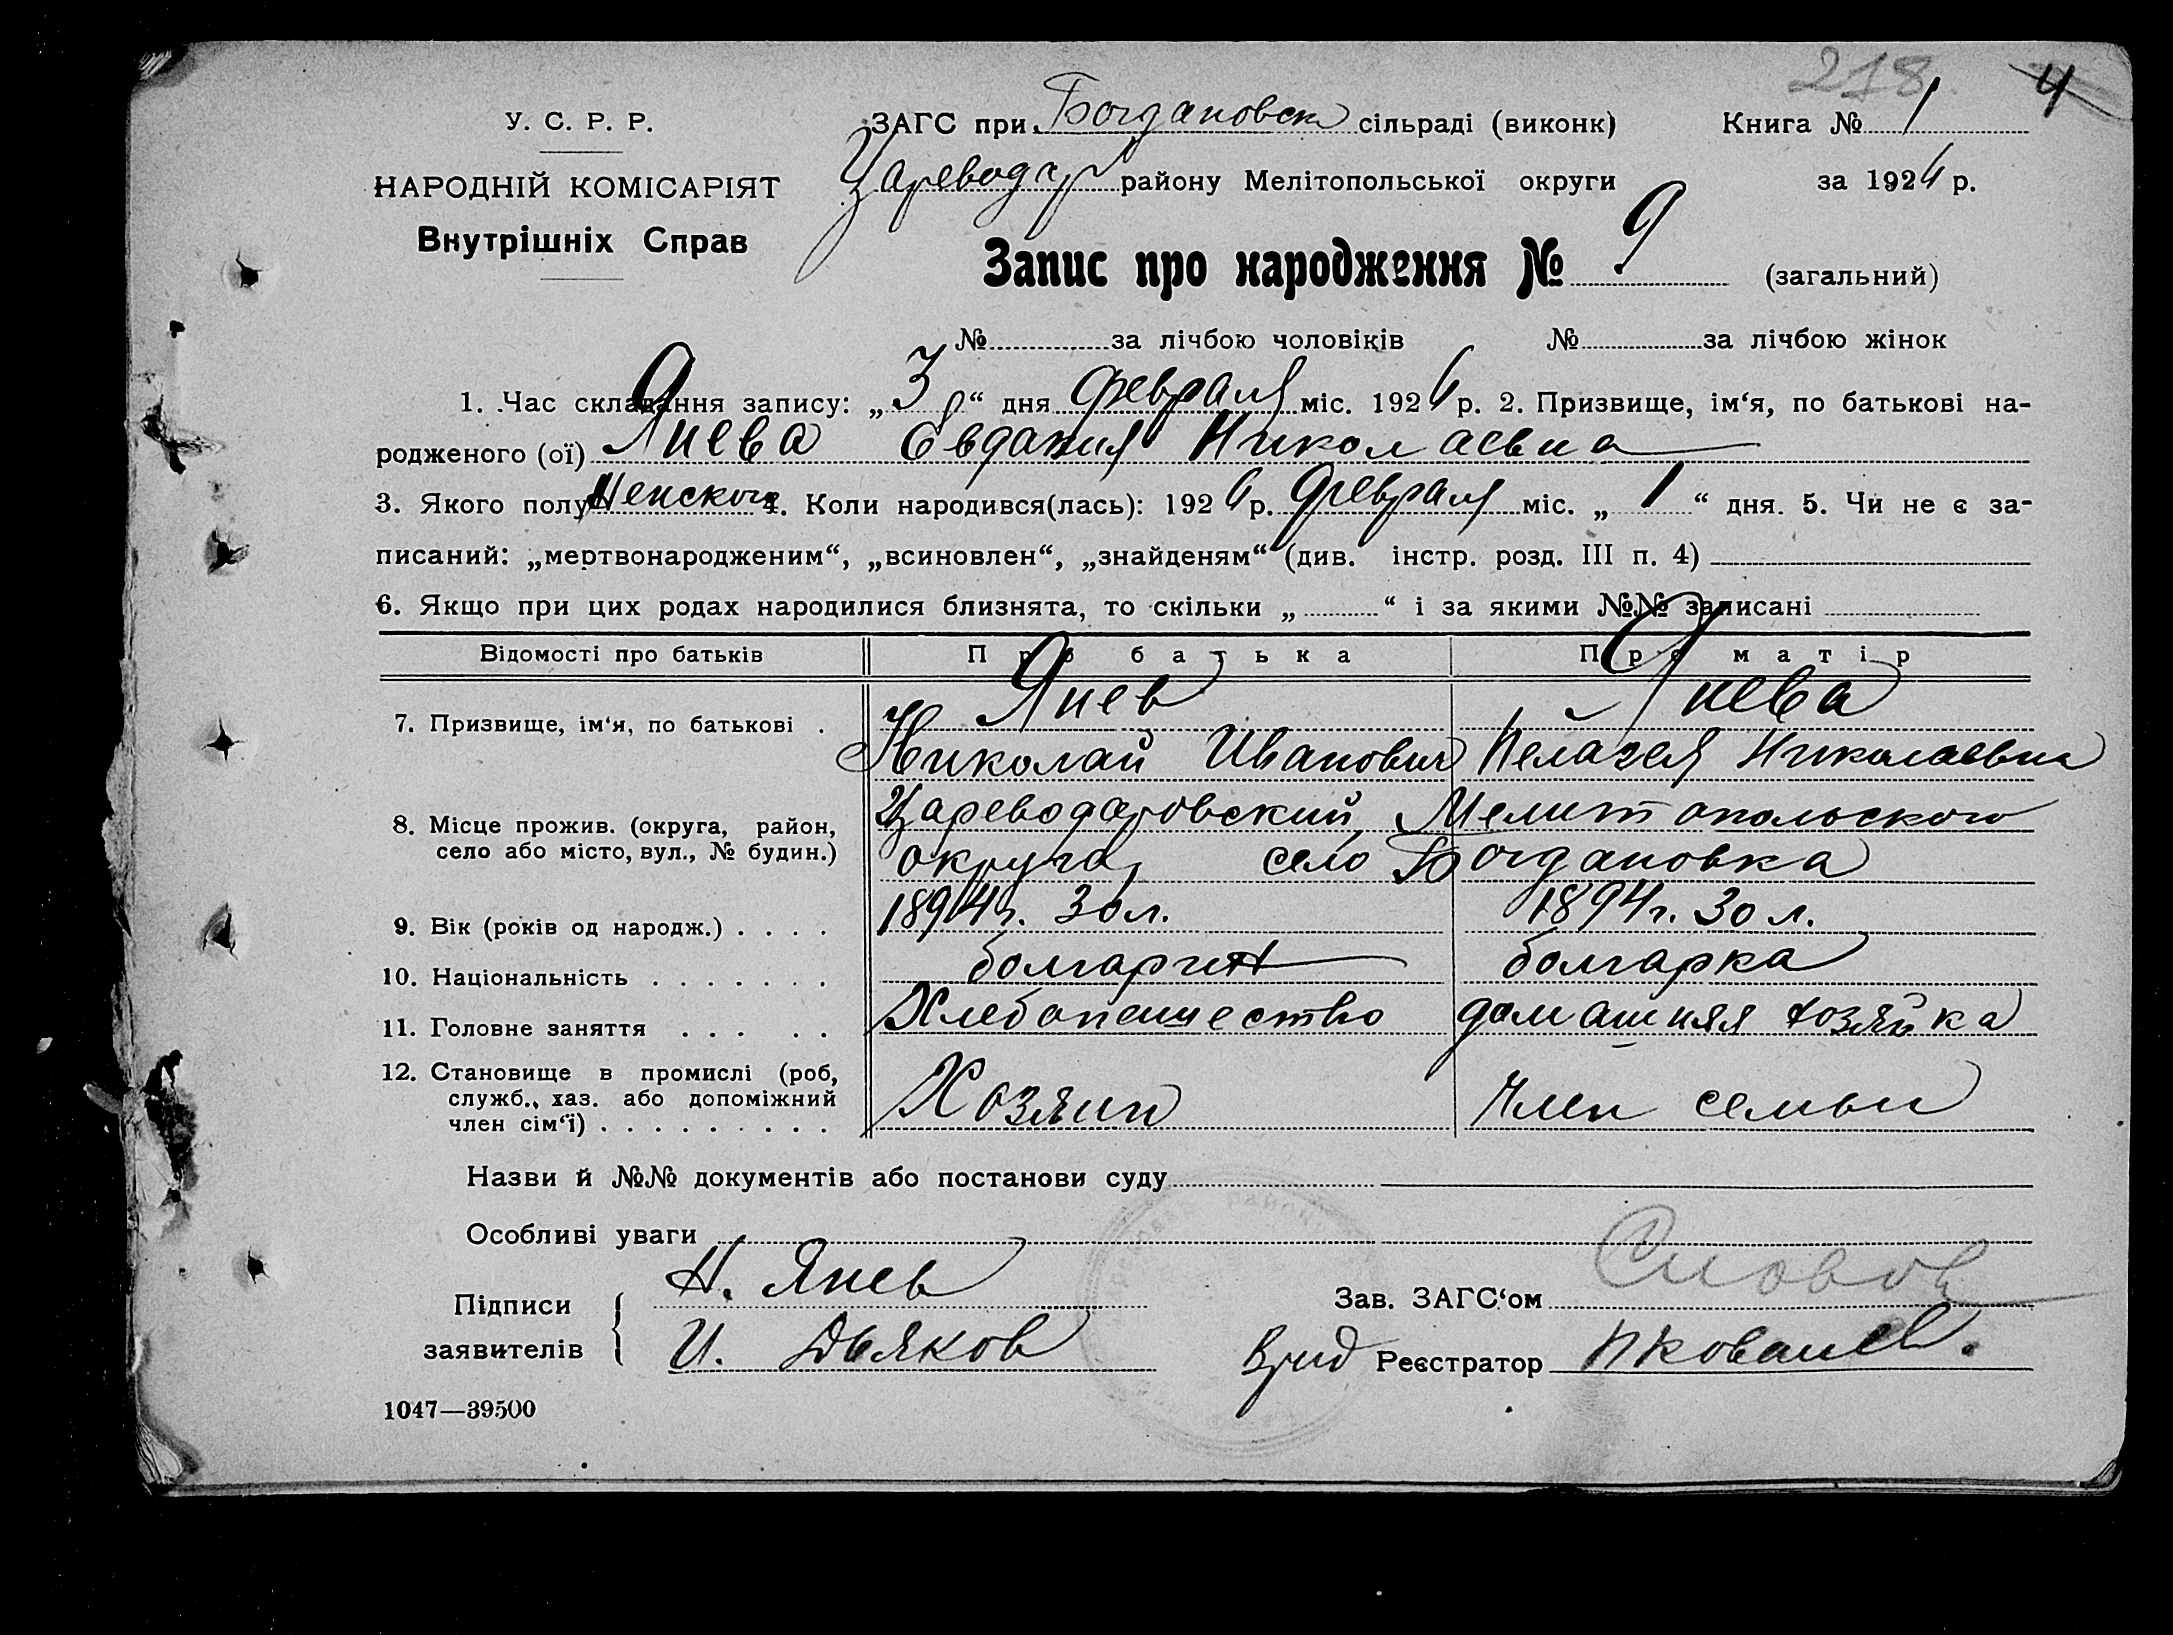 218 4
У. С. Р. Р.
ЗАГС при Богдановск сільраді (виконк) Книга № 1
НАРОДНІЙ КОМІСАРІЯТ
Цареводар району Мелітопольської округи за 1924 р.
Внутрішніх Справ
Запис про народження № 9 (загальний)
№ за лічбою чоловіків № за лічбою жінок
1. Час складання запису: „3" дня февраля міс. 1924 р. 2. Призвище, ім'я, по батькові на-
родженого (ої) Янева Евдакия Николаевна
3. Якого полу Женского 4. Коли народився(лась): 1924 р. февраля міс. „1" дня. 5. Чи не є за-
писаний: „мертвонародженим", „всиновлен", „знайденям" (див. інстр. розд. III п. 4)
6. Якщо при цих родах народилися близнята, то скільки „ " і за якими №№ записані
Відомості про батьків Про батька Про матір
7. Призвище, ім'я, по батькові . Янев Янева
Николай Иванович Пелагея Николаевна
8. Місце прожив. (округа, район, Цареводаровский, Мелитопольского
село або місто, вул., № будин.) округа, село Богдановка
9. Вік (років од народж.) . . . . 1894 г. 30 л. 1894 г. 30 л.
10. Національність . . . . . . . болгарин болгарка
11. Головне заняття . . . . . Хлебопашество домашняя хозяйка
12. Становище в промислі (роб,
служб., хаз. або допоміжний Хозяин Член семьи
член сім'ї) . . . . . . . . .
Назви й №№ документів або постанови суду
Особливі уваги
Підписи Н. Янев Зав. ЗАГС'ом
заявителів И. Дьяков Врид Реєстратор
1047—39500